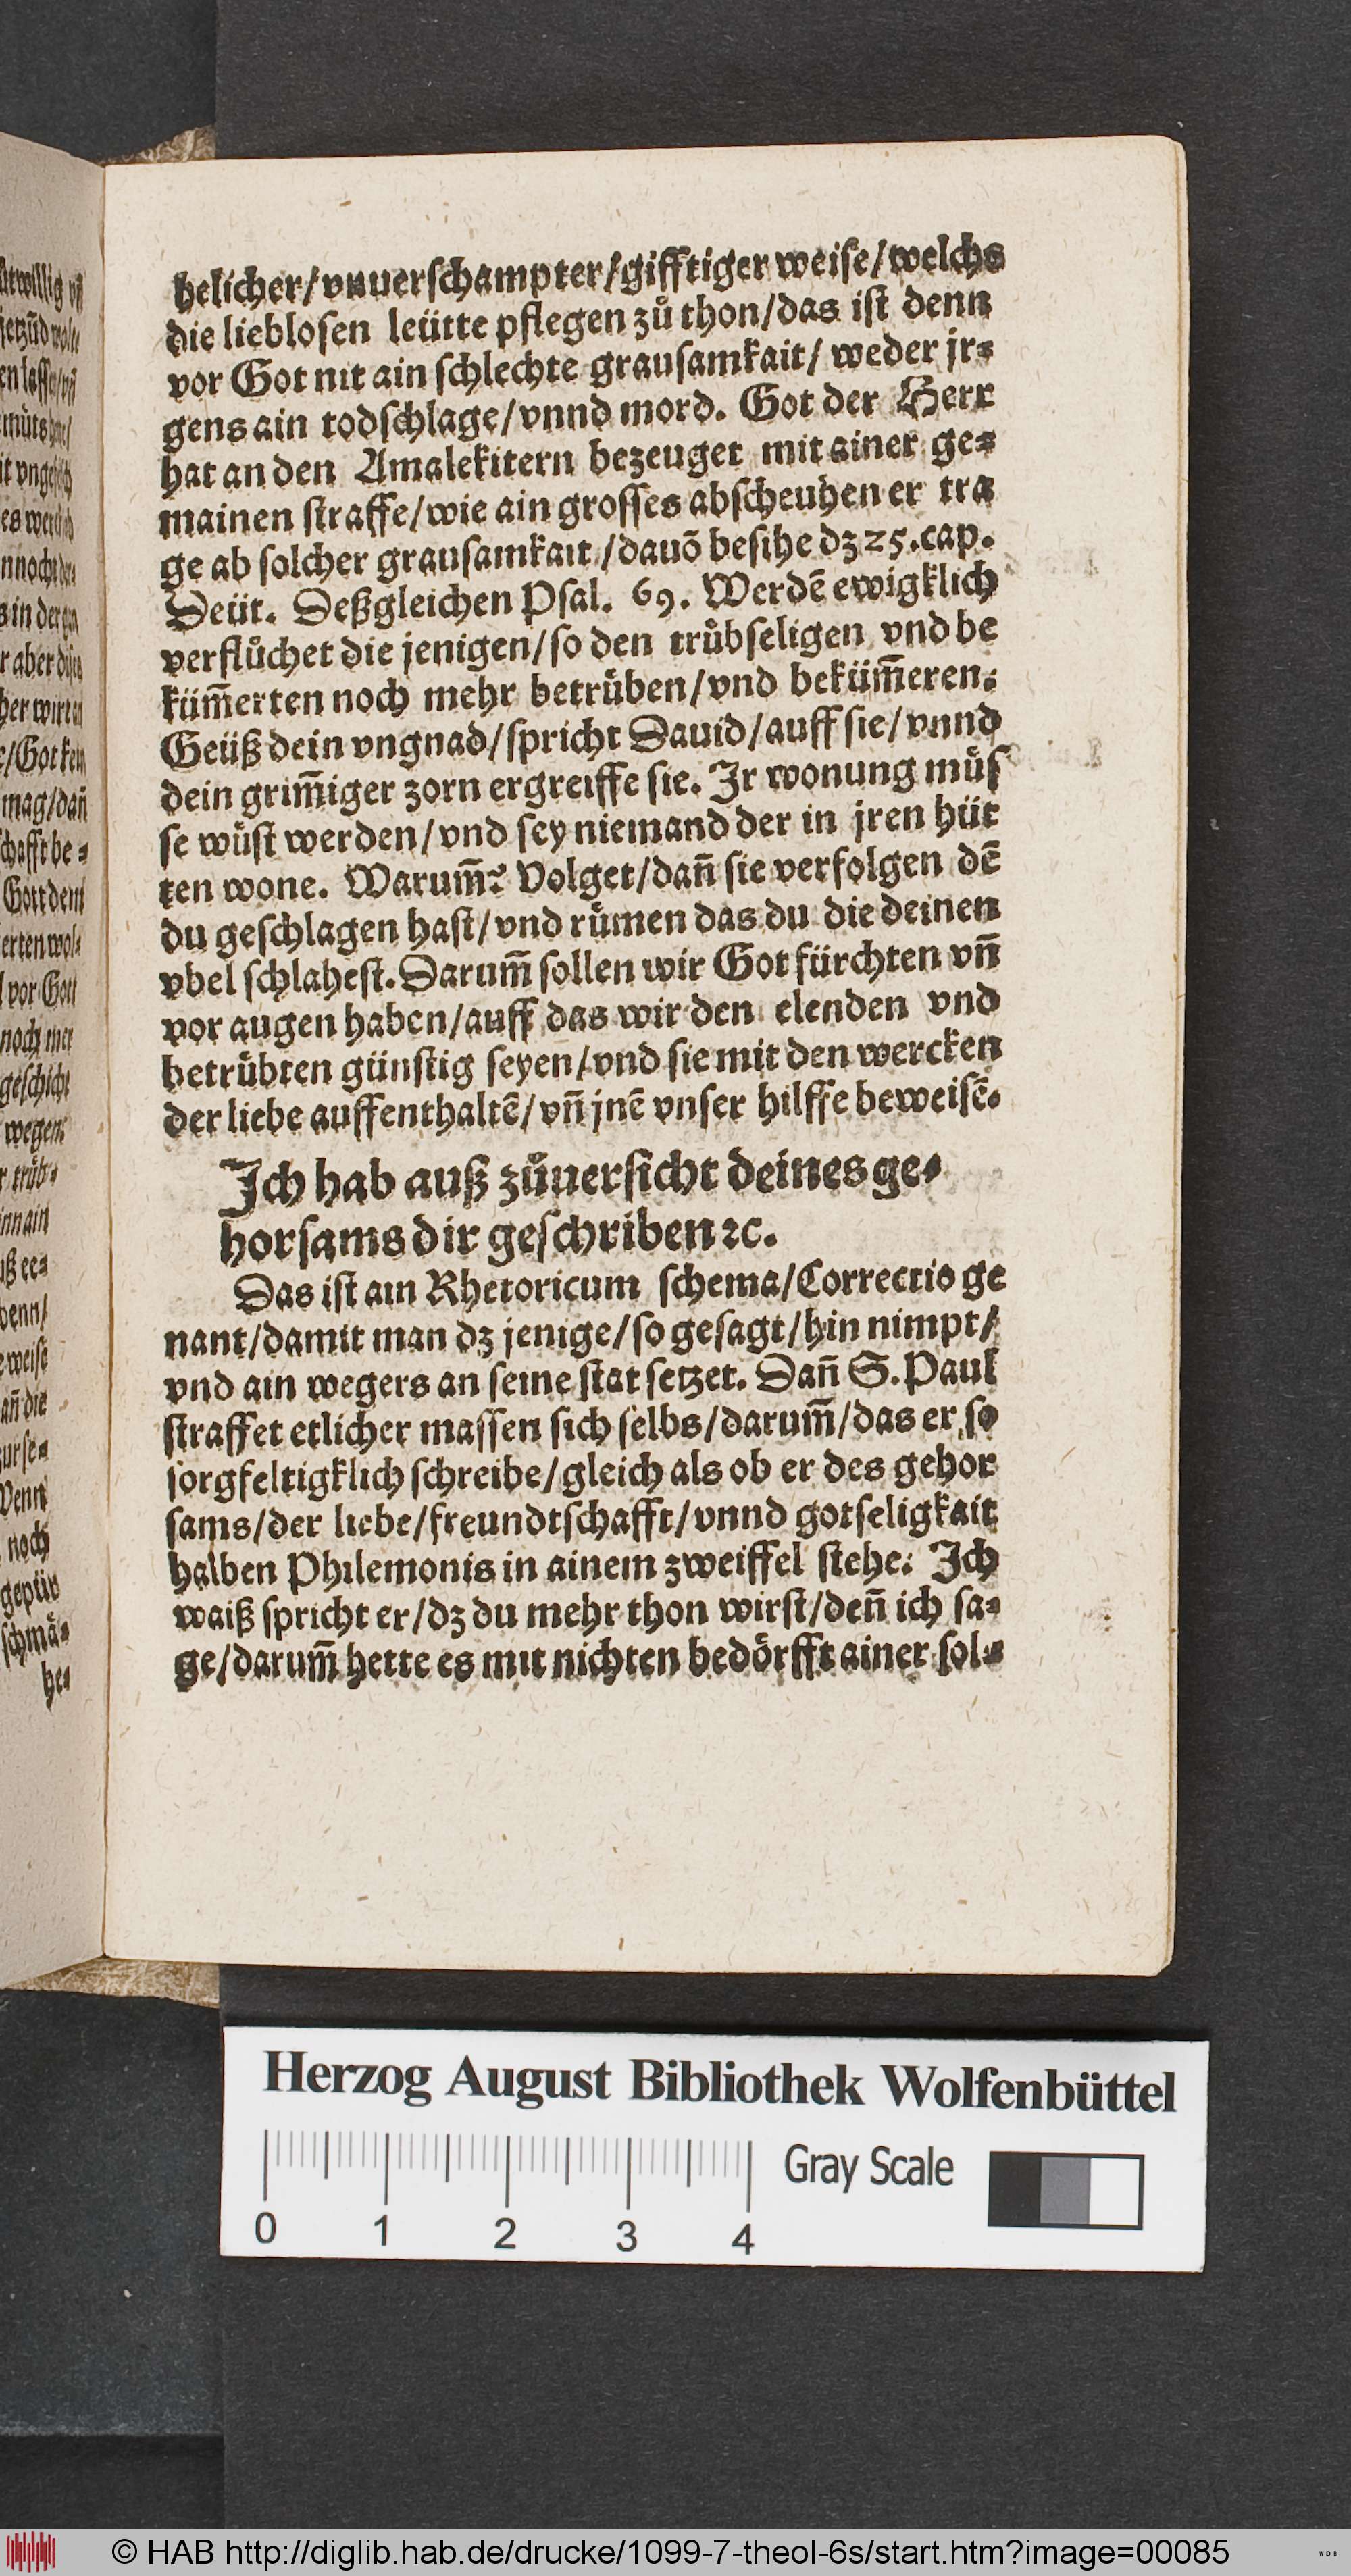 helicher/vnuerschampter/gifftiger weise/welchs
die lieblosen leütte pflegen zů thon/das ist denn
vor Got nit ain schlechte grausamkait/ weder jr⸗
gens ain todschlage/vnnd mord. Got der Herr
hat an den Amalekitern bezeuget mit ainer ge⸗
mainen straffe/wie ain grosses abscheuhen er tra
ge ab solcher grausamkait/dauõ besihe dz 25.cap.
Deüt. Deßgleichen Psal. 69. Werdẽ ewigklich
verflůchet die jenigen/so den trůbseligen vnd be
küm̃erten noch mehr betrůben/vnd beküm̃eren.
Geüß dein vngnad/spricht Dauid/auff sie/vnnd
dein grim̃iger zorn ergreiffe sie. Ir wonung můs
se wůst werden/vnd sey niemand der in jren hüt
ten wone. Warum̃? Volget/dañ sie verfolgen dẽ
du geschlagen hast/vnd růmen das du die deinen
vbel schlahest. Darum̃ sollen wir Got fürchten vñ
vor augen haben/auff das wir den elenden vnd
betrůbten günstig seyen/vnd sie mit den wercken
der liebe auffenthaltẽ/vñ jnẽ vnser hilffe beweisẽ.
Ich hab auß zůuersicht deines ge⸗
horsams dir geschriben ꝛc.
Das ist ain Rhetoricum schema/Correctio ge
nant/damit man dz jenige/so gesagt/hin nimpt/
vnd ain wegers an seine stat setzet. Dañ S. Paul
straffet etlicher massen sich selbs/darum̃/das er so
sorgfeltigklich schreibe/gleich als ob er des gehor
sams/der liebe/freundtschafft/vnnd gotseligkait
halben Philemonis in ainem zweiffel stehe. Ich
waiß spricht er/dz du mehr thon wirst/deñ ich sa⸗
ge/darum̃ hette es mit nichten bedörfft ainer sol⸗
Herzog August Bibliothek Wolfenbüttel
Gray Scale
0 1 2 3 4
© HAB http://diglib.hab.de/drucke/1099-7-theol-6s/start.htm?image=00085